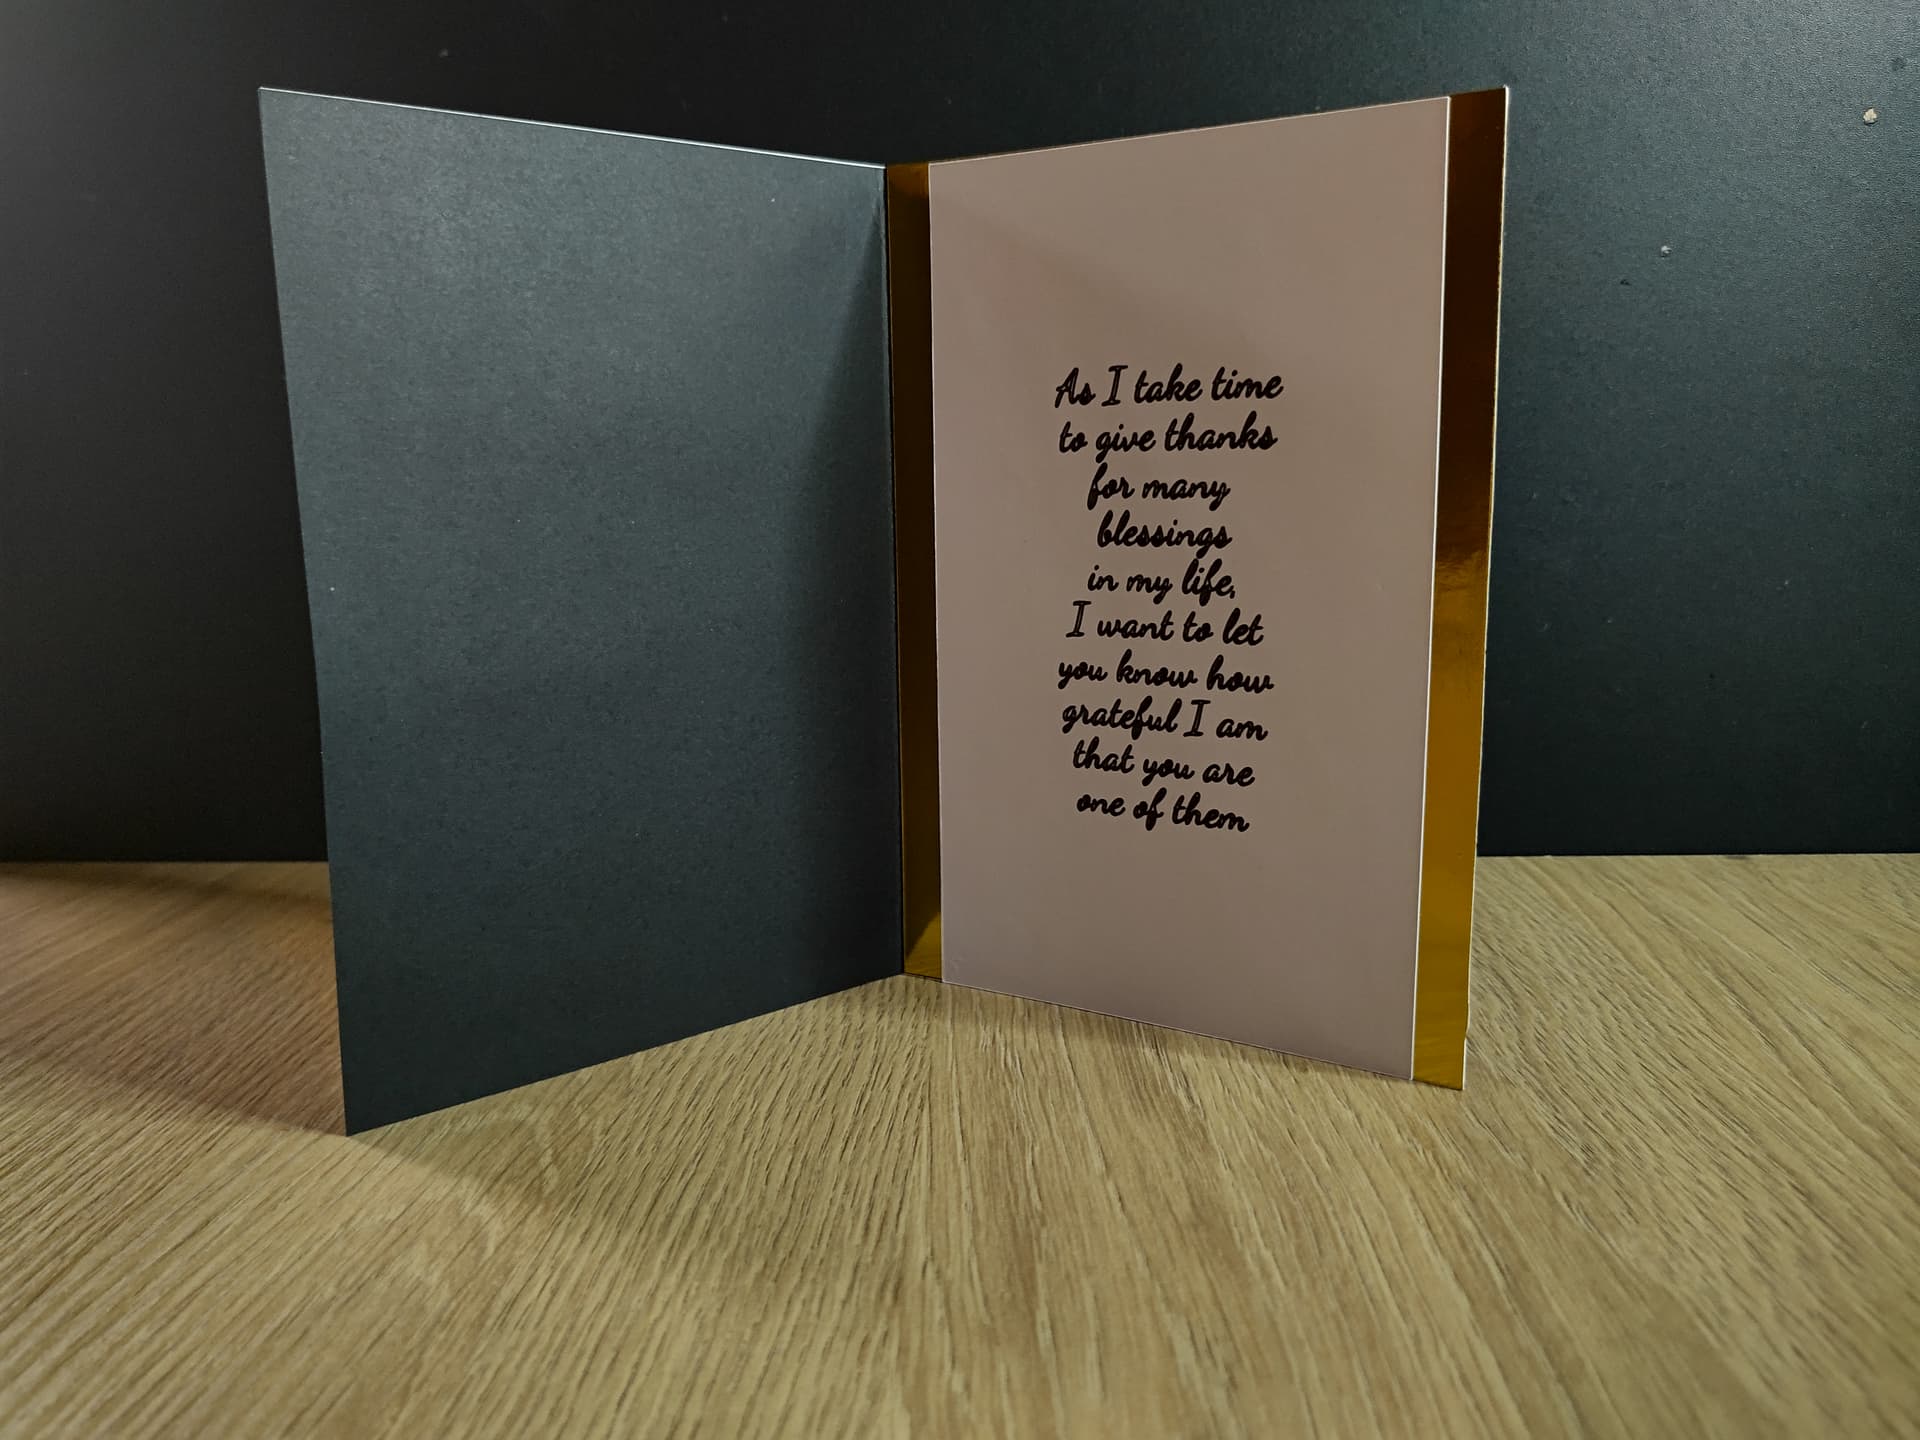 As I take time
to give thanks
for many
blessings
in my life,
I want to let
you know how
grateful I am
that you are
one of them